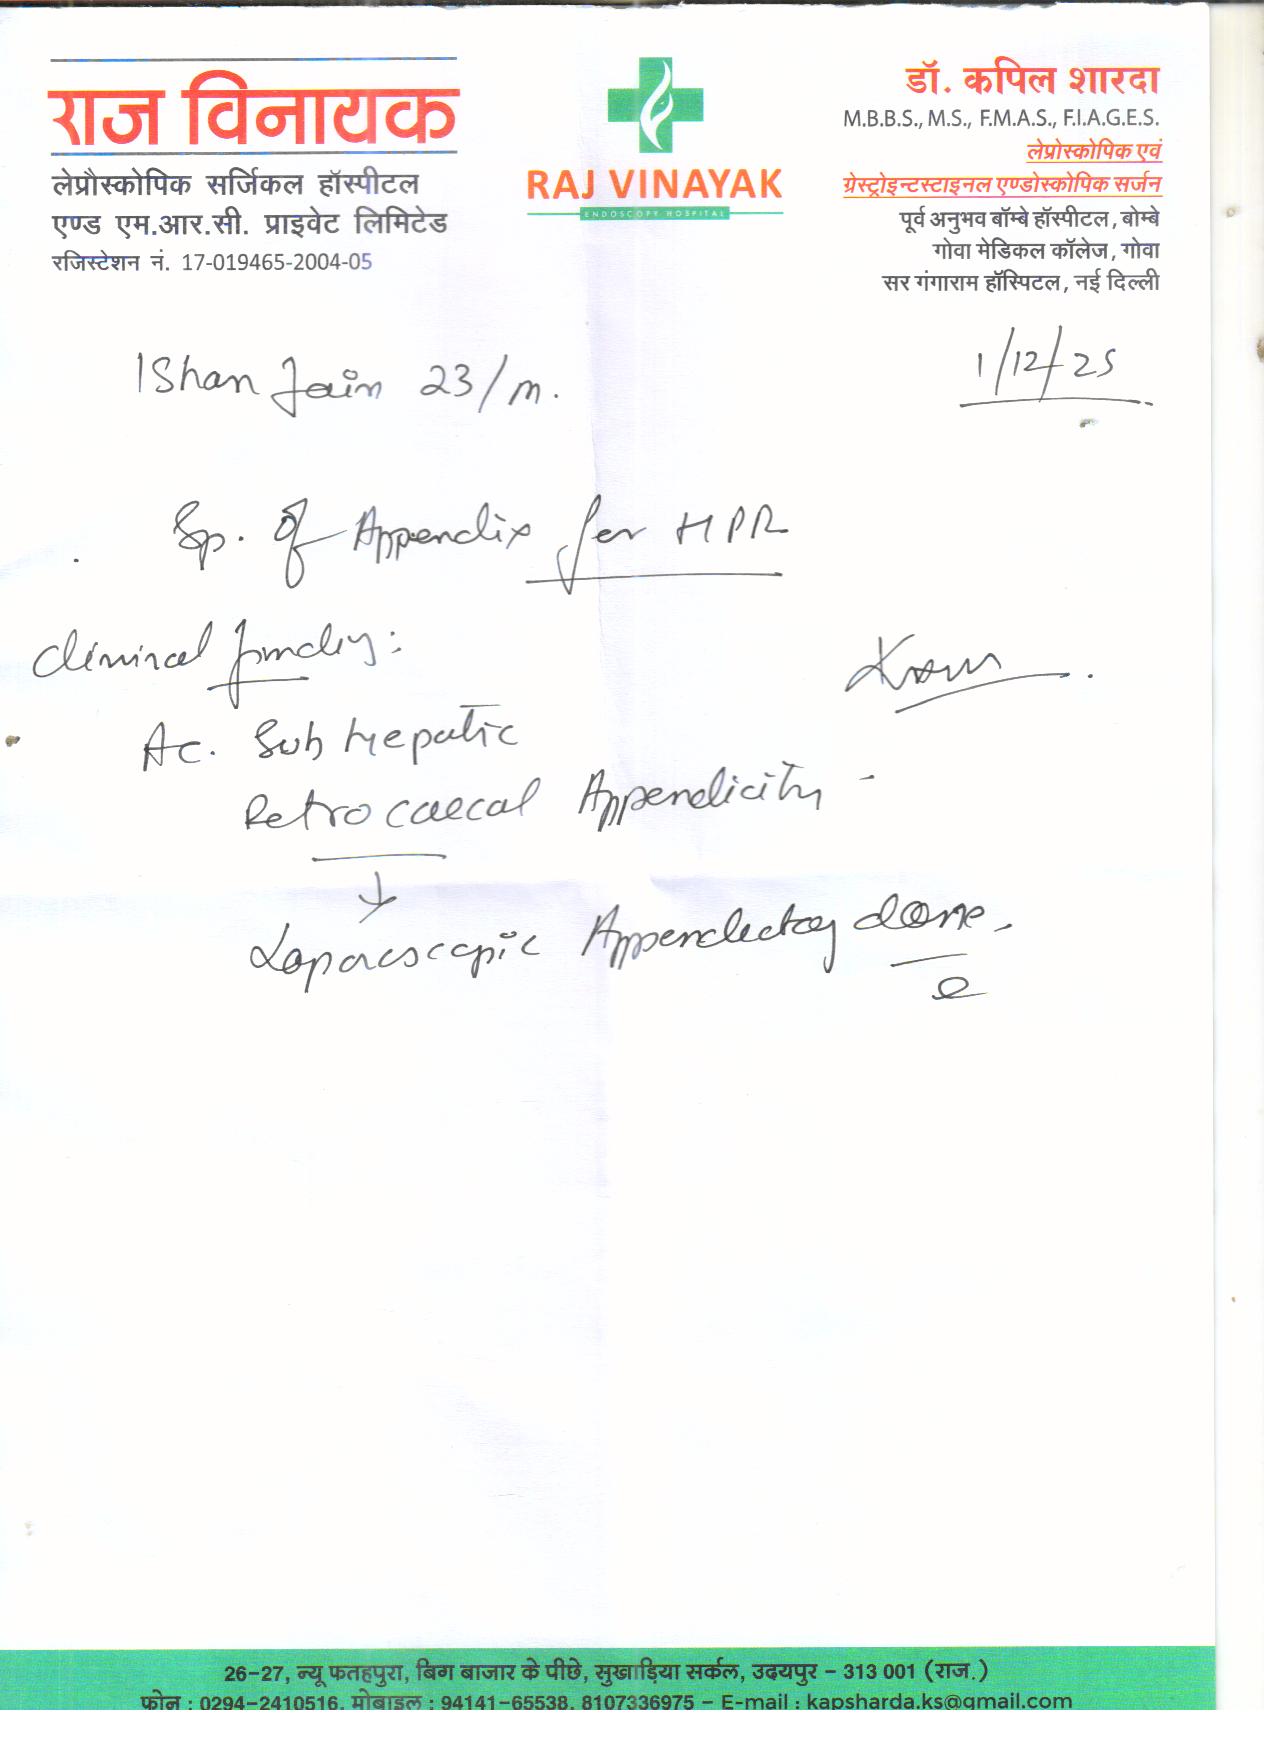 राज विनायक
लेप्रौस्कोपिक सर्जिकल हॉस्पीटल
एण्ड एम.आर.सी. प्राइवेट लिमिटेड
रजिस्टेशन नं. 17-019465-2004-05
RAJ VINAYAK
ENDOSCOPY HOSPITAL
डॉ. कपिल शारदा
M.B.B.S., M.S., F.M.A.S., F.I.A.G.E.S.
लेप्रोस्कोपिक एवं
ग्रेस्ट्रोइन्टस्टाइनल एण्डोस्कोपिक सर्जन
पूर्व अनुभव बॉम्बे हॉस्पीटल, बोम्बे
गोवा मेडिकल कॉलेज, गोवा
सर गंगाराम हॉस्पिटल, नई दिल्ली
1/12/25
Ishan Jain 23/m.
Sp. of Appendix for HPR
Clinical
Ac. Sub Hepatic
Retrocaecal Appendicitis -
↓
Laparoscopic Appendectomy done.
26-27, न्यू फतहपुरा, बिग बाजार के पीछे, सुखाड़िया सर्कल, उदयपुर - 313 001 (राज.)
फोन : 0294-2410516, मोबाइल : 94141-65538, 8107336975 - E-mail : kapsharda.ks@gmail.com